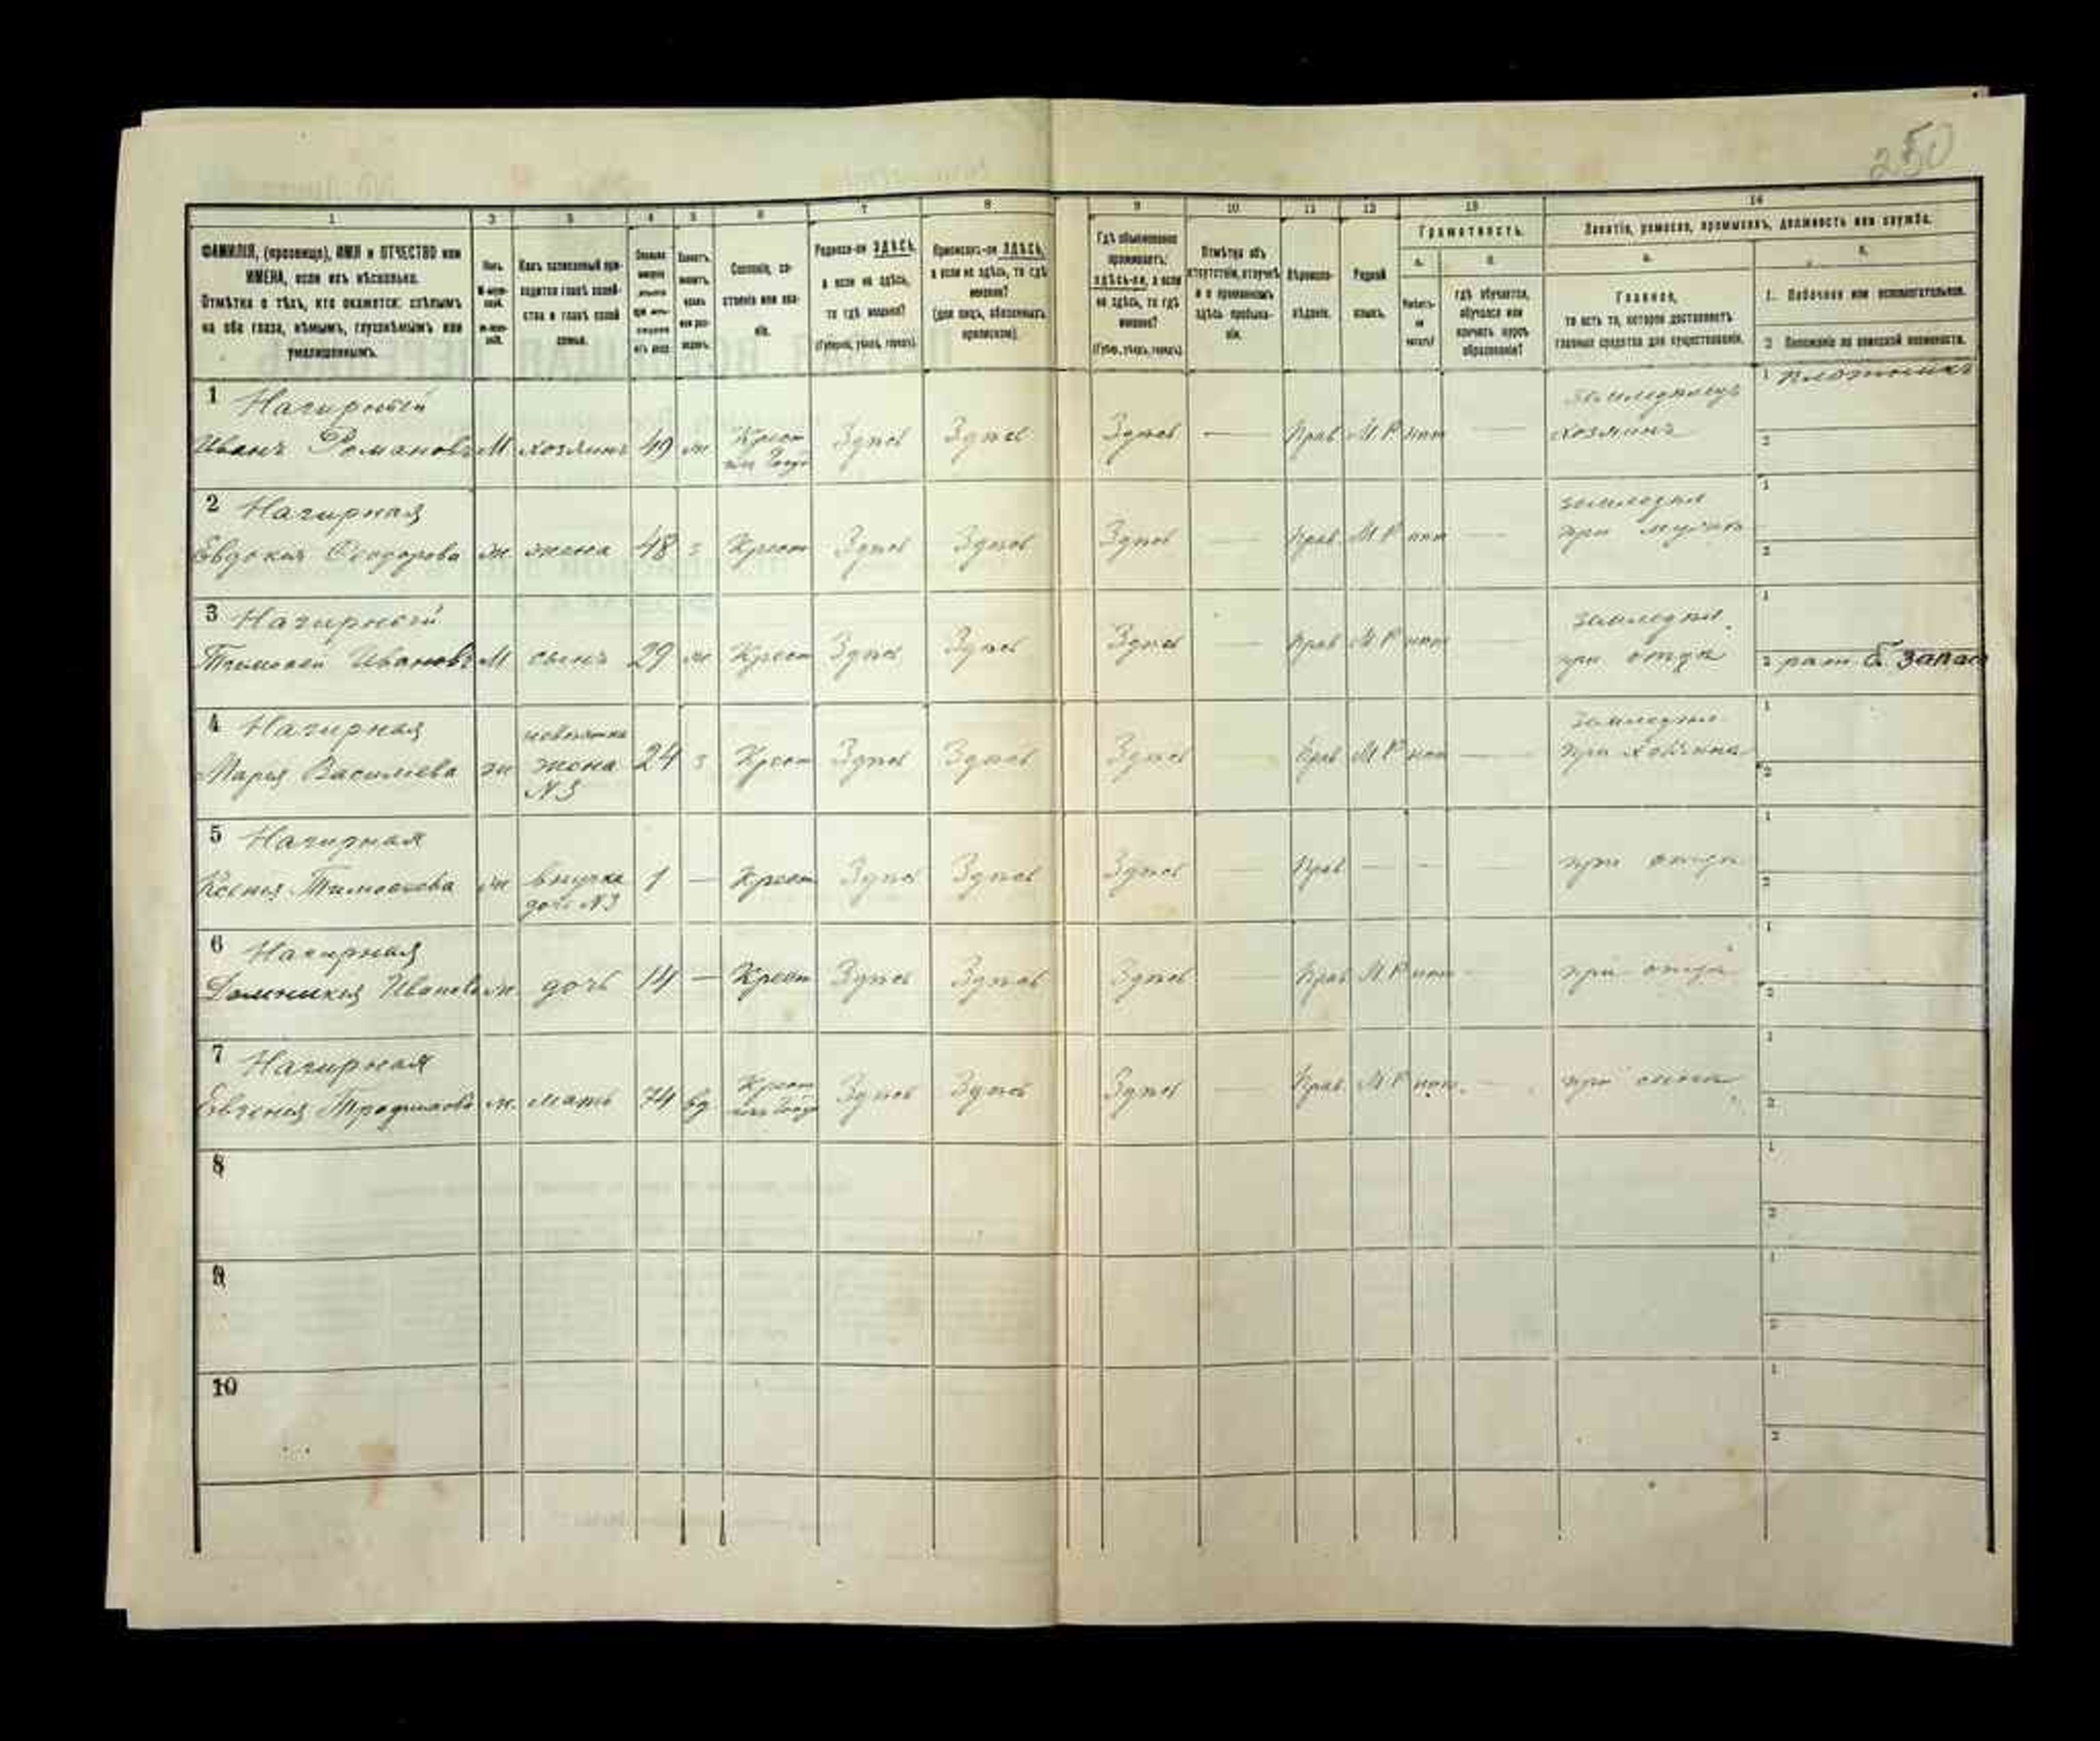 250
1 2 3 4 5 6 7 8 9 10 11 12 13 14
ФАМИЛІЯ, (прозвище), ИМЯ и ОТЧЕСТВО или
ИМЕНА, если ихъ нѣсколько.
Отмѣтка о тѣхъ, кто окажется: слѣпымъ
на оба глаза, нѣмымъ, глухонѣмымъ или
умалишеннымъ.
Полъ.
Какъ записанный при-
ходится главѣ хозяй-
ства и главѣ своей
семьи.
Сословіе, со-
стояніе или зва-
ніе.
Родился-ли ЗДѢСЬ,
а если не здѣсь,
то гдѣ именно?
(Губернія, уѣздъ, городъ).
Приписанъ-ли ЗДѢСЬ,
а если не здѣсь, то гдѣ
именно?
(для лицъ, обязанныхъ
припиской).
Гдѣ обыкновенно
проживаетъ:
здѣсь-ли, а если
не здѣсь, то гдѣ
именно?
(Губер., уѣздъ, городъ).
Отмѣтка объ
отсутствіи, отлучкѣ
и о временномъ
здѣсь пребыва-
ніи.
Вѣроиспо-
вѣданіе.
Родной
языкъ.
Грамотность.
а. б.
Умѣетъ-
ли
читать?
гдѣ обучается,
обучался или
кончилъ курсъ
образованія?
Занятіе, ремесло, промыселъ, должность или служба.
а. б.
Главное,
то есть то, которое доставляетъ
главныя средства для существованія.
1. Побочное или вспомогательное.
2 Положеніе по воинской повинности.
1 Нагирный
Иванъ Романовъ М хозяинъ 49 ж Крест Здѣсь Здѣсь Здѣсь — Прав М.Р нѣт — хозяинъ
1 плотникъ
2
2 Нагирная
Евдокия Феодорова ж жена 48 з Крест Здѣсь Здѣсь Здѣсь — Прав М.Р нѣт — земледѣл
при мужѣ
1
2
3 Нагирный
Тимофей Ивановъ М сынъ 29 ж Крест Здѣсь Здѣсь Здѣсь — Прав М.Р нѣт — земледѣл
при отцѣ
1
2 запас
4 Нагирная
Марья Василиева ж невѣстка жена N3 24 з Крест Здѣсь Здѣсь Здѣсь — Прав М.Р нѣт — земледѣл
при хозяинѣ
1
2
5 Нагирная
Ксения Тимофеева ж внучка дочь N3 1 — Крест Здѣсь Здѣсь Здѣсь — Прав — — — при отцѣ
1
2
6 Нагирная
Домникия Иванова ж дочь 14 — Крест Здѣсь Здѣсь Здѣсь — Прав М.Р нѣт — при отцѣ
1
2
7 Нагирная
Евгения Трофимова ж. мать 74 вд Крест Здѣсь Здѣсь Здѣсь — Прав. М.Р нѣт. — при сынѣ
1
2
8
1
2
9
1
2
10
1
2